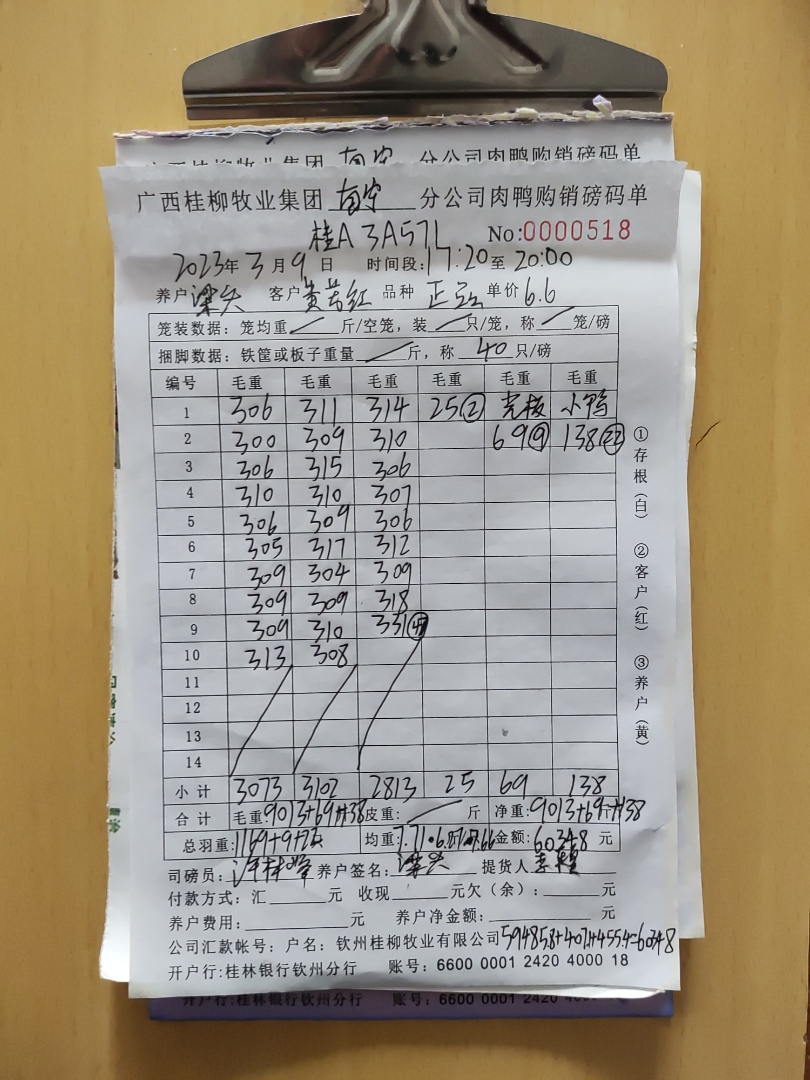 广西桂柳牧业集团 南宁 分公司肉鸭购销磅码单
广西桂柳牧业集团 南宁 分公司肉鸭购销磅码单
桂A 3A571 No:0000518
2023年 3月 9日 时间段:17:20至 20:00
养户 梁头 客户 黄苦红 品种 正 单价 6.6
笼装数据:笼均重 / 斤/空笼,装 / 只/笼,称 / 笼/磅
捆脚数据:铁筐或板子重量 / 斤,称 40 只/磅
编号 毛重 毛重 毛重 毛重 毛重 毛重
1 306 311 314 25② 光板 小鸭
2 300 309 310 69⑨ 138㉒
3 306 315 306
4 310 310 307
5 306 309 306
6 305 317 312
7 309 304 309
8 309 309 318
9 309 310 331
10 313 308
11
12
13
14
小计 3073 3102 2813 25 69 138
合计 毛重:9013+69+138 皮重: / 斤 净重:9013+69+138
总羽重:1169+9+22 均重:7.71 金额:60348 元
司磅员: 养户签名:梁头 提货人
付款方式:汇 元 收现 元欠(余): 元
养户费用: 元 养户净金额: 元
公司汇款帐号:户名:钦州桂柳牧业有限公司 59485.8+407.4+455.4=60348
开户行:桂林银行钦州分行 账号:6600 0001 2420 4000 18
开户行:桂林银行钦州分行 账号:6600 0001 2420
①存根(白) ②客户(红) ③养户(黄)